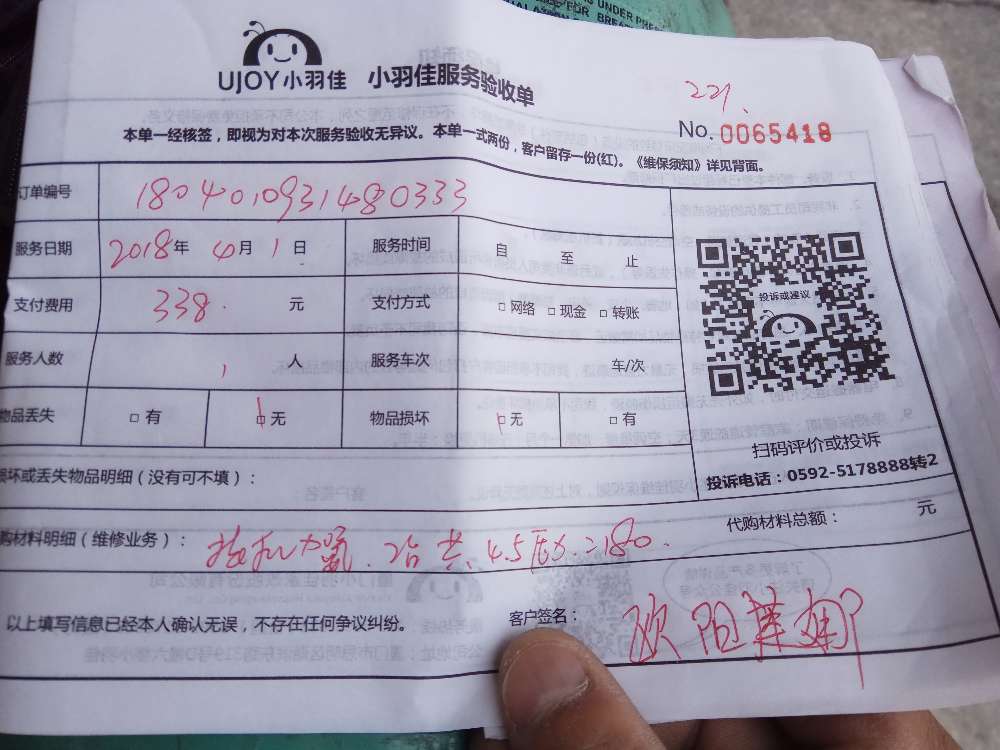 UNDER PRE
FOR BREA
UJOY小羽佳 小羽佳服务验收单
221.
No. 0065418
本单一经核签，即视为对本次服务验收无异议。本单一式两份，客户留存一份(红)。《维保须知》详见背面。
订单编号 1804010931480333
服务日期 2018年 4月 1日 服务时间 自 至 止
支付费用 338. 元 支付方式 □网络 □现金 □转账
服务人数 1 人 服务车次 车/次
物品丢失 □有 □无 物品损坏 □无 □有
投诉或建议
扫码评价或投诉
投诉电话：0592-5178888转2
损坏或丢失物品明细（没有可不填）：
购材料明细（维修业务）： 挂机加氟 共4.5压力=180. 代购材料总额： 元
以上填写信息已经本人确认无误，不存在任何争议纠纷。 客户签名： 欧阳莲娜